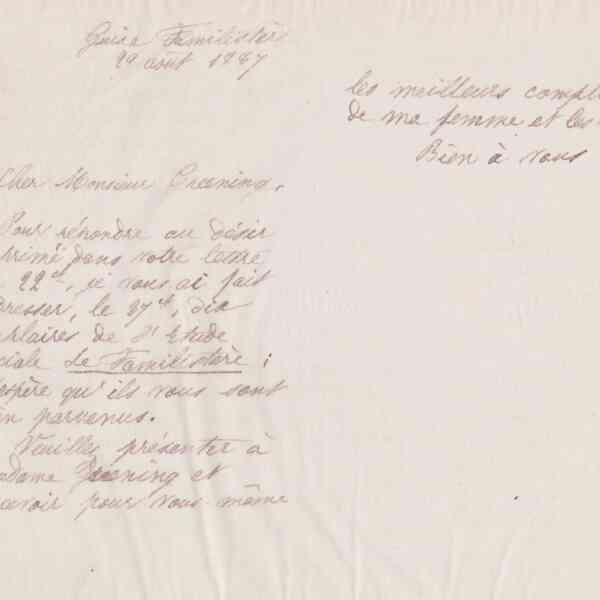 Guise Familistère
29 août 1887
Cher Monsieur Greening,
Pour répondre au désir
primé dans votre lettre
22 ct, je vous ai fait
dresser, le 27 ct, dix
plaires de l'Etude
ciale Le Familistère ;
espère qu'ils vous sont
en parvenus.
Veuillez présenter à
adame Greening et
cevoir pour vous-même
les meilleurs compli
de ma femme et les
Bien à vous